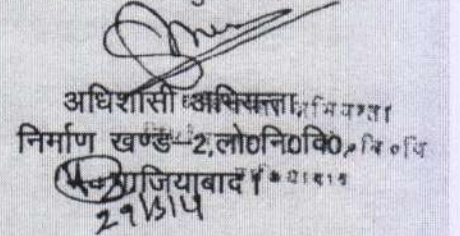 अधिशासी अभियन्ता,
निर्माण खण्ड-2,लो0नि0वि0,
गाजियाबाद।
29/3/14